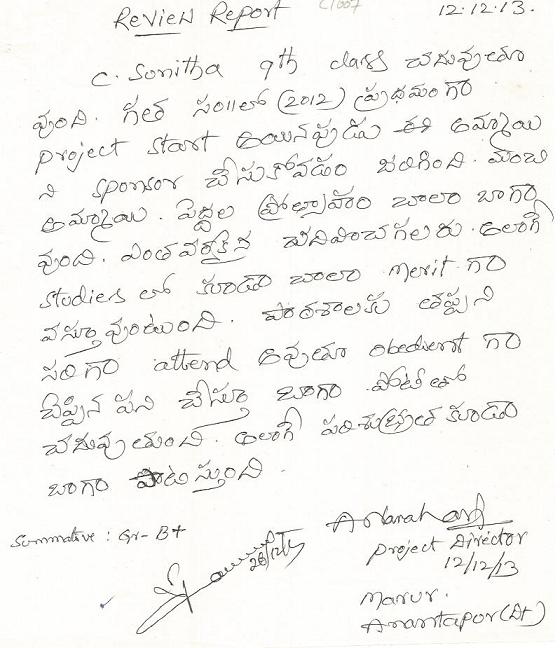 Review Report
C1007
12.12.13.
C. Sunitha 9th class చదువుతూ
వుంది. గత సం॥లో (2012) ప్రధమంగా
project start అయినపుడు ఈ అమ్మాయి
ని sponsor చేసుకోవడం జరిగింది. మంచి
అమ్మాయి. పెద్దల ప్రోత్సాహం చాలా బాగా
వుంది. ఎంతవరకైన చదివించగలరు. అలాగే
studies లో కూడా చాలా merit గా
వస్తూవుంటుంది. పాఠశాలకు తప్పని
సరిగా attend అవుతూ obedient గా
చెప్పిన పని చేస్తూ బాగా పోటీతో
చదువుతుంది. అలాగే పరిశుభ్రత కూడా
బాగా పాటిస్తుంది.
Summative : Gr- B+
Project Director
12/12/13
Marur.
Anantapur (Dt)